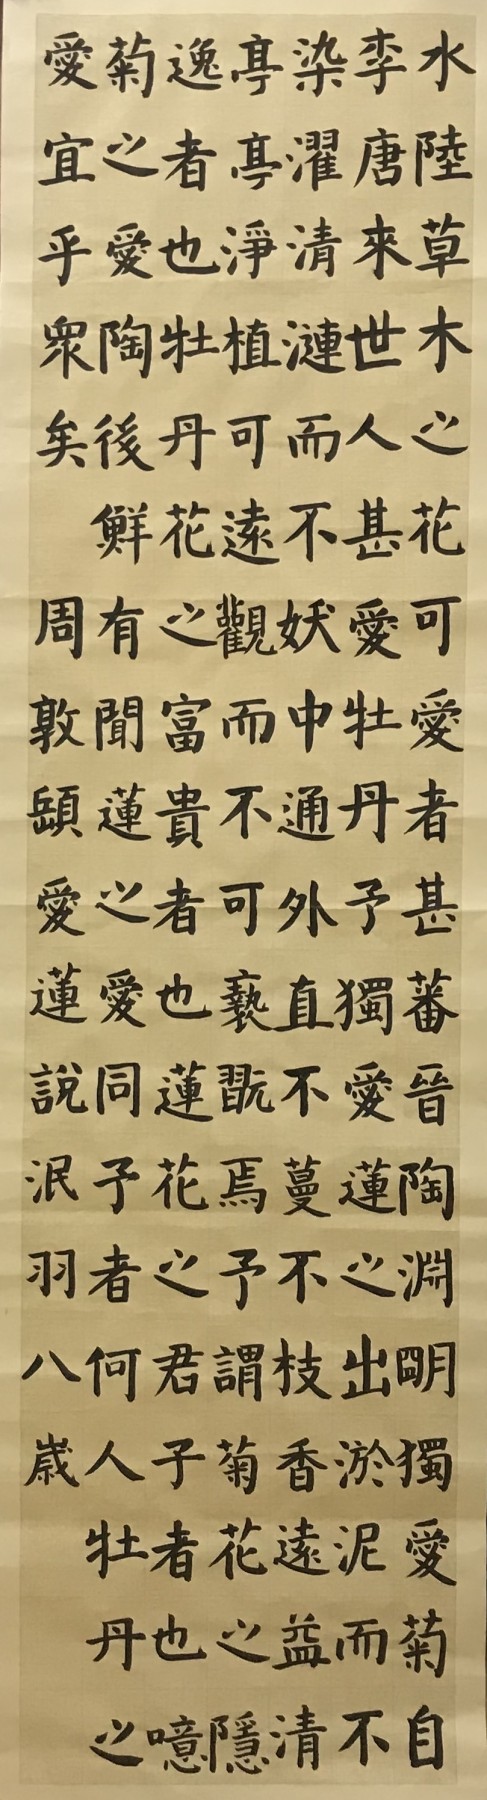 水陸草木之花可愛者甚蕃晉陶淵明獨愛菊自
李唐來世人甚愛牡丹予獨愛蓮之出淤泥而不
染濯清漣而不妖中通外直不蔓不枝香遠益清
亭亭淨植可遠觀而不可褻翫焉予謂菊花之隱
逸者也牡丹花之富貴者也蓮花之君子者也噫
菊之愛陶後鮮有聞蓮之愛同予者何人牡丹之
愛宜乎衆矣 周敦頤愛蓮說泯羽八歲